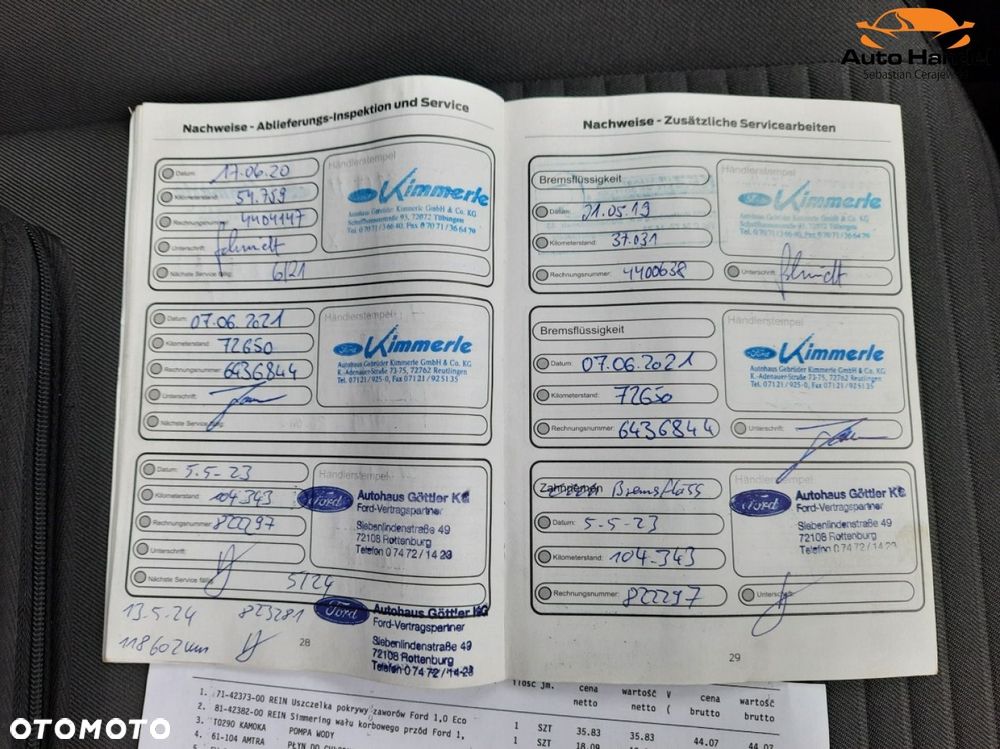 Auto Hand
Sebastian Cerajew
Nachweise - Ablieferungs-Inspektion und Service
Datum: 17.06.20
Kilometerstand: 54.759
Rechnungsnummer: 4404147
Unterschrift: Schmidt
Nächste Service fällig: 6/21
Händlerstempel
Ford Kimmerle
Autohaus Gebrüder Kimmerle GmbH & Co. KG
72072 Tübingen
Datum: 07.06.2021
Kilometerstand: 72650
Rechnungsnummer: 6436844
Unterschrift:
Nächste Service fällig:
Händlerstempel
Ford Kimmerle
Autohaus Gebrüder Kimmerle GmbH & Co. KG
K.-Adenauer-Straße 73-75, 72762 Reutlingen
Tel. 07121/925-0, Fax 07121/925135
Datum: 5-5-23
Kilometerstand: 104343
Rechnungsnummer: 822297
Unterschrift:
Nächste Service fällig: 5/24
Händlerstempel
Ford Autohaus Göttler KG
Ford-Vertragspartner
Siebenlindenstraße 49
72108 Rottenburg
Telefon 0 74 72 / 14 23
13.5.24 823281
118602km
Ford Autohaus Göttler KG
Ford-Vertragspartner
Siebenlindenstraße 49
72108 Rottenburg
Telefon 0 74 72 / 14 23
28
Nachweise - Zusätzliche Servicearbeiten
Bremsflüssigkeit
Datum: 31.05.19
Kilometerstand: 37.031
Rechnungsnummer: 4400638
Händlerstempel
Ford Kimmerle
Autohaus Gebrüder Kimmerle GmbH & Co. KG
72072 Tübingen
Unterschrift: Schmidt
Bremsflüssigkeit
Datum: 07.06.2021
Kilometerstand: 72650
Rechnungsnummer: 6436844
Händlerstempel
Ford Kimmerle
Autohaus Gebrüder Kimmerle GmbH & Co. KG
K.-Adenauer-Straße 73-75, 72762 Reutlingen
Tel. 07121/925-0, Fax 07121/925135
Unterschrift:
Zahnriemen Bremsflüss
Datum: 5-5-23
Kilometerstand: 104.343
Rechnungsnummer: 822297
Händlerstempel
Ford Autohaus Göttler KG
Ford-Vertragspartner
Siebenlindenstraße 49
72108 Rottenburg
Telefon 0 74 72 / 14 23
Unterschrift:
29
Ilość jm. cena wartość V cena wartość
netto netto ( brutto brutto
1. 71-42373-00 REIN Uszczelka pokrywy zaworów Ford 1,0 Eco
2. 81-42382-00 REIN Simmering wału korbowego przód Ford 1, 1 SZT 35.83 35.83 44.07 44.07
3. T0290 KAMOKA POMPA WODY 1 SZT 18.09
4. 61-104 AMTRA
OTOMOTO